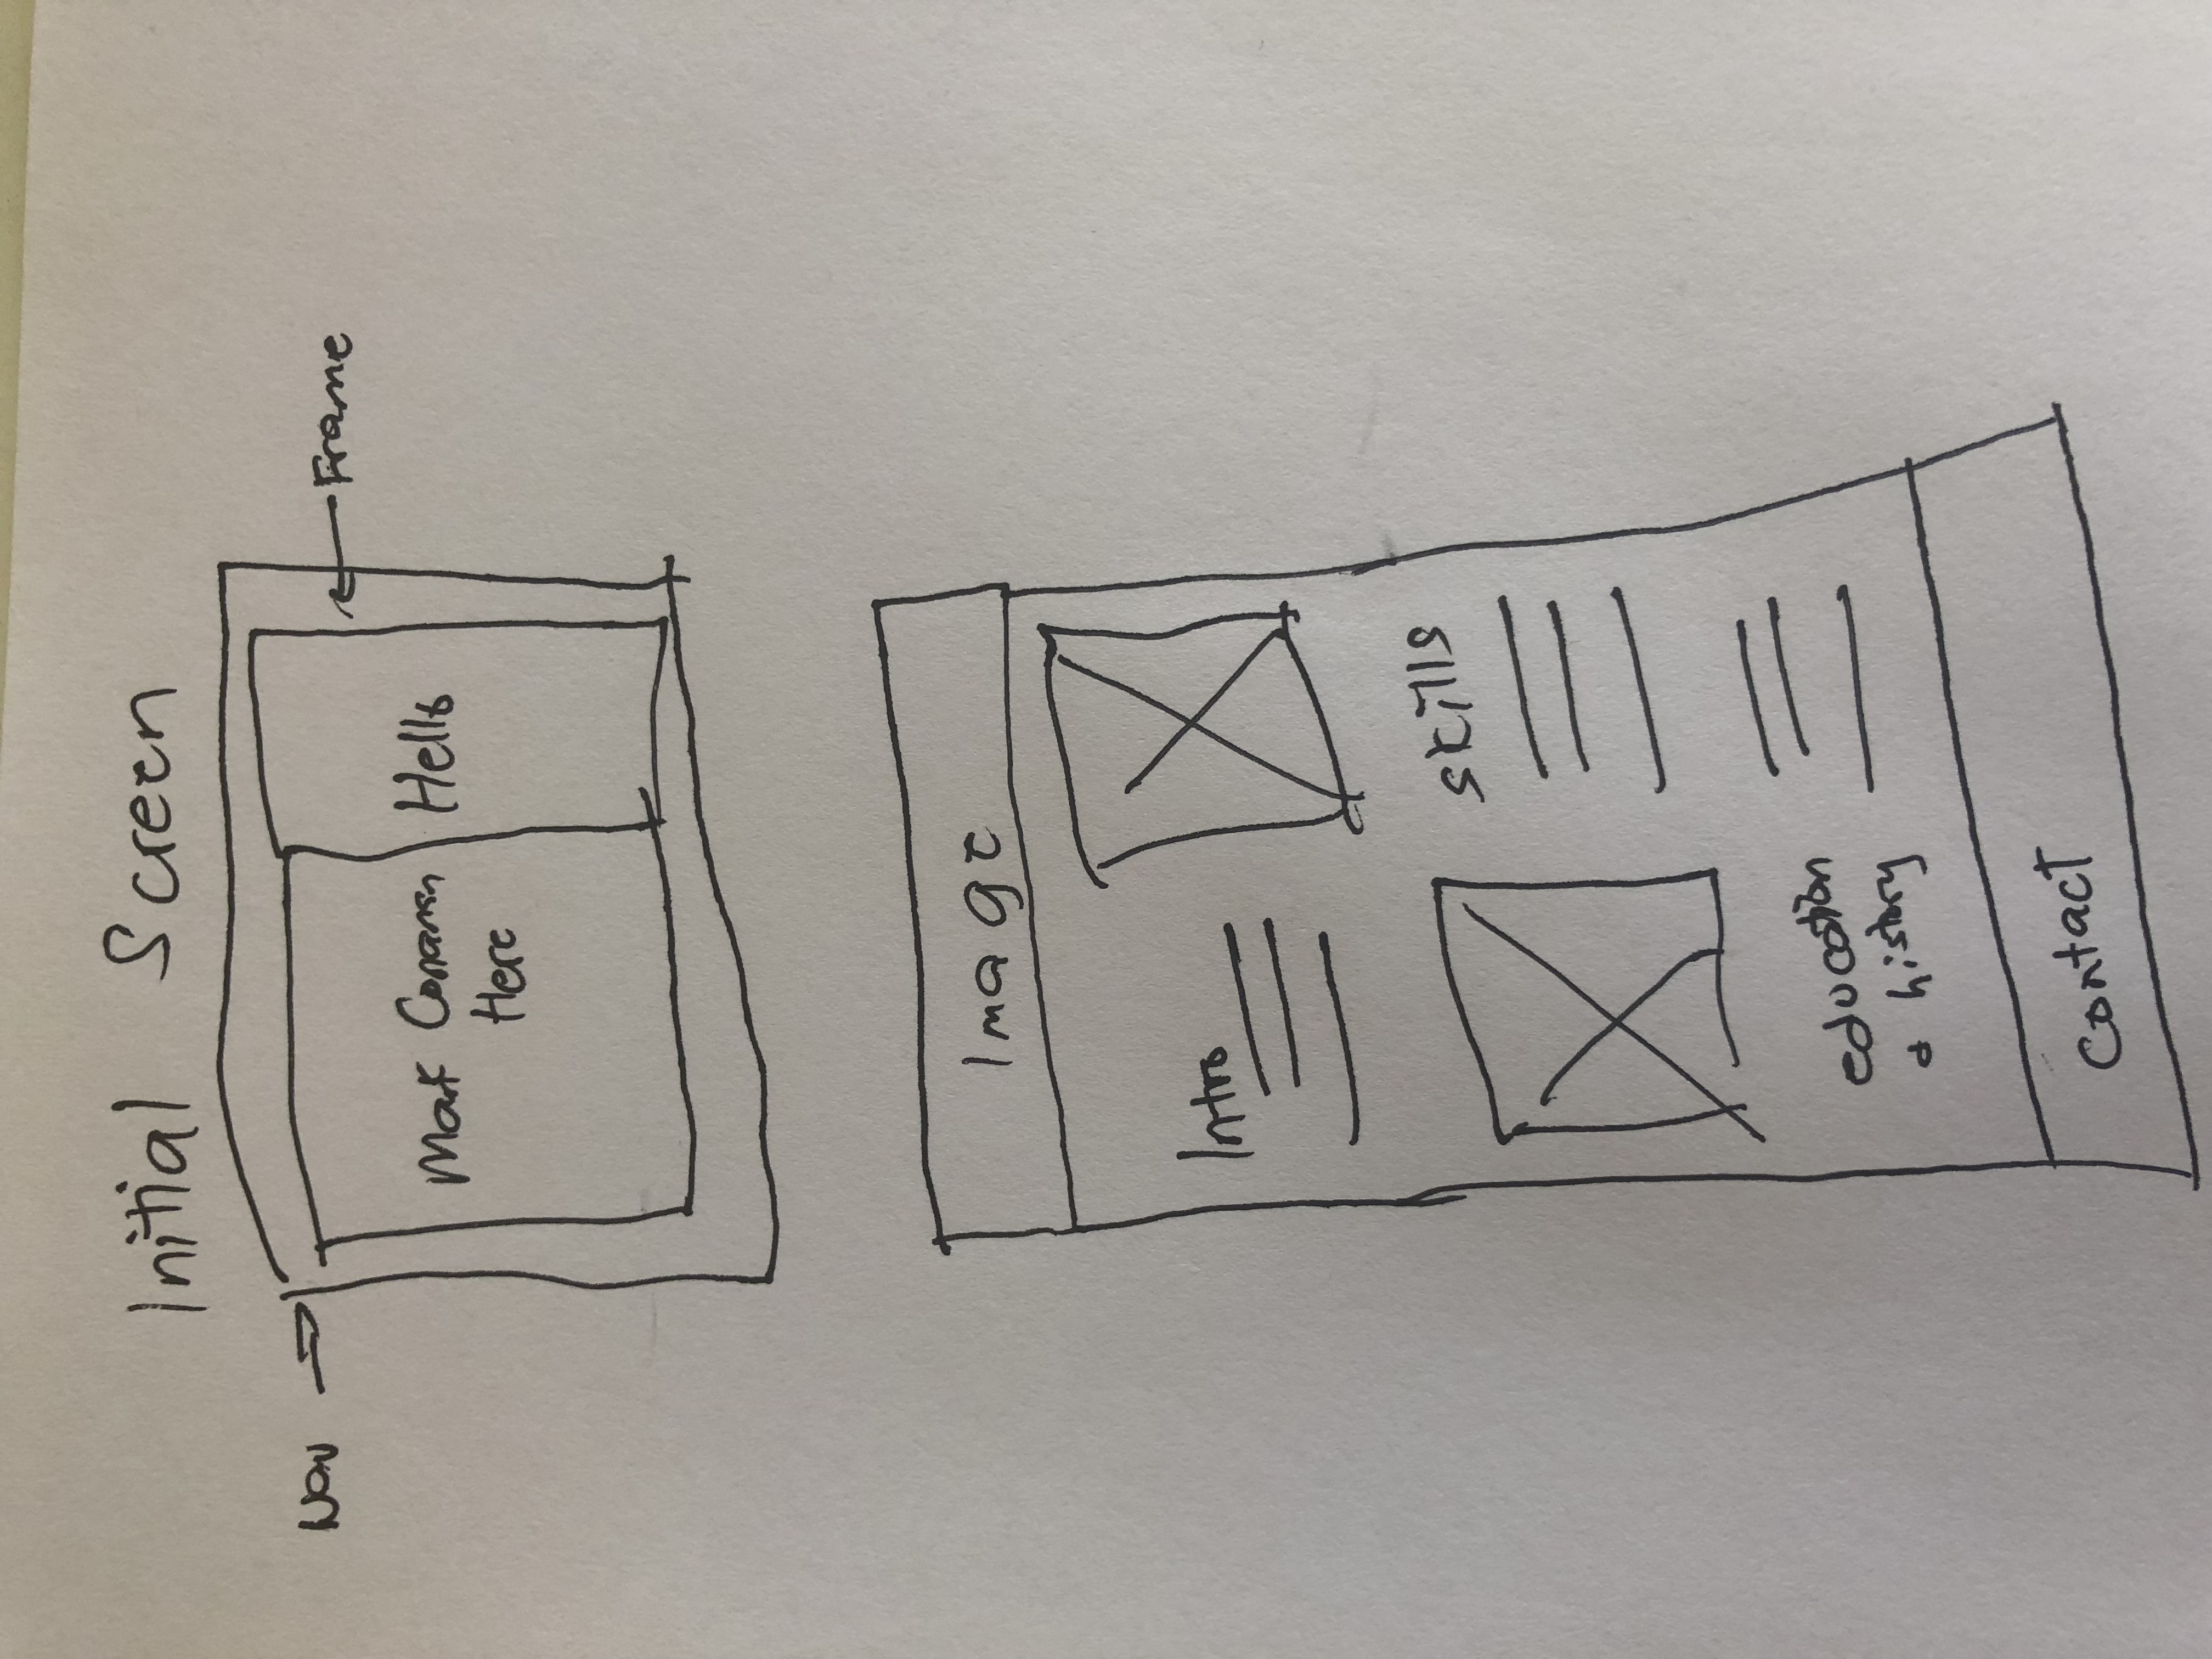 Initial Screen
Nav
Frame
Mark
Here
Hello
Image
Intro
skills
education
& history
Contact